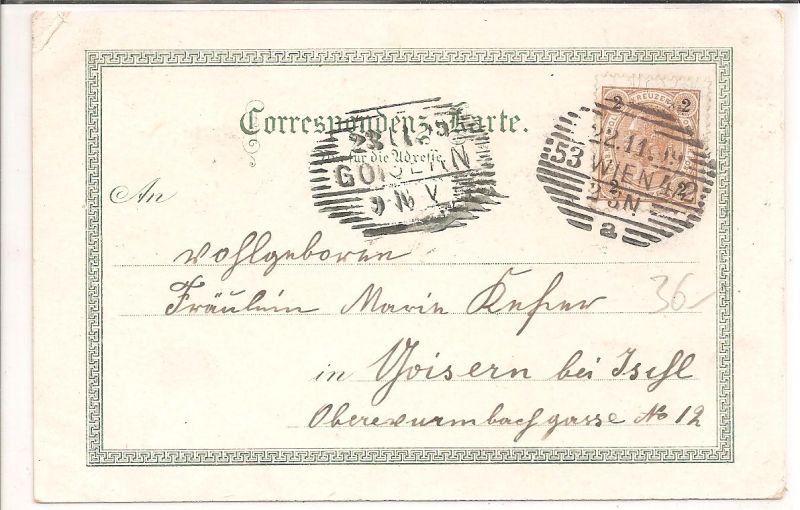 Correspondenz-Karte.
Nur für die Adresse
23 11 99
GOISERN
9 10 V
2 KREUZER 2
2 2
53
22.11.99
WIEN 4/2
2-3N
a
An
Wohlgeboren
Fräulein Marie Kefer
36-
in Goisern bei Ischl
Oberewurmbachgasse No 12